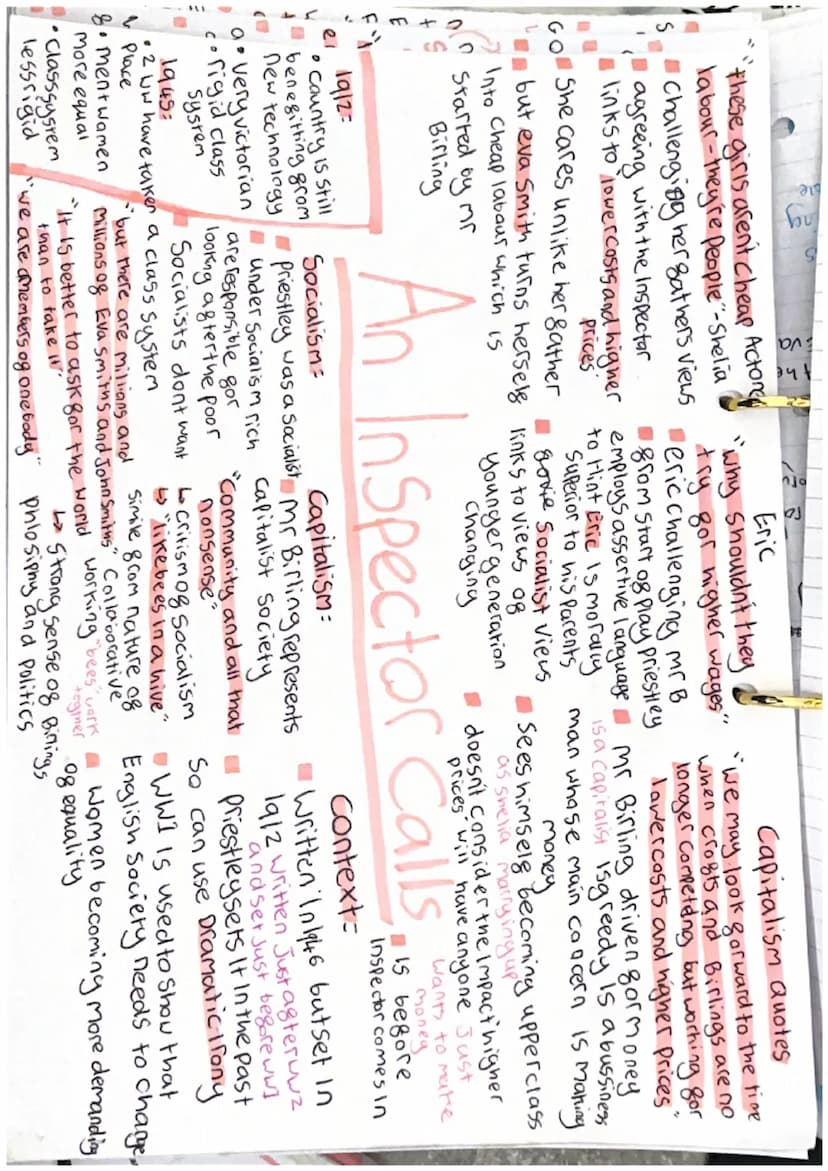 Action
"these girls arent cheap
labour - they're people" - Shelia
Challenging her fathers views
agreeing with the Inspector
links to lower costs and higher
prices
She cares unlike her father
but eva Smith turns herself
Into cheap labour which is
Started by mr
Birling
Eric
"why shouldn't they
try for higher wages"
eric challenging mr B
from start of play priestley
employs assertive language
to Hint Eric is morally
superior to his parents
Socialist views
links to views of
younger generation
changing
Capitalism quotes
"we may look forward to the time
when crofts and Birlings are no
longer competding but working for
lower costs and higher prices"
Mr Birling driven for money
is a capitalist is greedy is a bussiness
man whose main concern is making
money
Sees himself becoming upper class
as shelia marrying up
doesnt consider the impact higher
prices will have anyone Just
wants to make
money
Is before
Inspector comes in
An Inspector Calls
1912:
• country is still
benefitting from
new technology
• very victorian
• rigid class
system
1945:
• 2 ww have taken
place
• men + women
more equal
• Class system
less rigid
Socialism:
priestley was a socialist
under socialism rich
are responsible for
looking after the poor
Socialists dont want
a class system
"but there are millions and
millions of Eva smiths and John smiths"
"It is better to ask for the world
than to take it"
"we are members of one body"
Capitalism:
Mr Birling represents
capitalist society
"Community and all that
nonsense"
↳ critism of socialism
↳ "like bees in a hive"
simile from nature of
collaborative
working "bees" work
togther
↳ strong sense of Birlings
philosiphy and politics
Context:
Written in 1946 but set in
1912 written Just after ww2
and set just before ww1
Priestley sets it in the past
so can use Dramatic Irony
WW1 is used to show that
English society needs to change
Women becoming more demanding
of equality